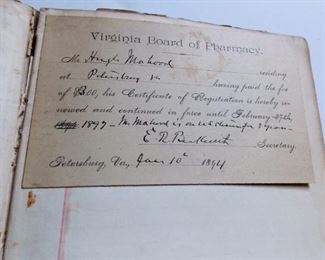 Virginia Board of Pharmacy.
Mr. Hugh Mahood residing
at Petersburg Va having paid the fee
of $3.00, his Certificate of Registration is hereby re-
newed and continued in force until February 27th,
1897 - Mr Mahood is 3 years
E. R. Secretary.
Petersburg, Va, 10" 1894